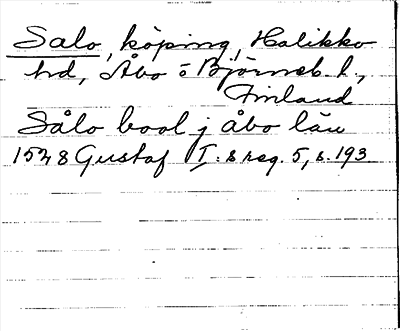 Salo, köping, Halikko
hd, Åbo o Björneb. l.,
Finland
Sålo bool j åbo län
1528 Gustaf I:s reg. 5, s. 193